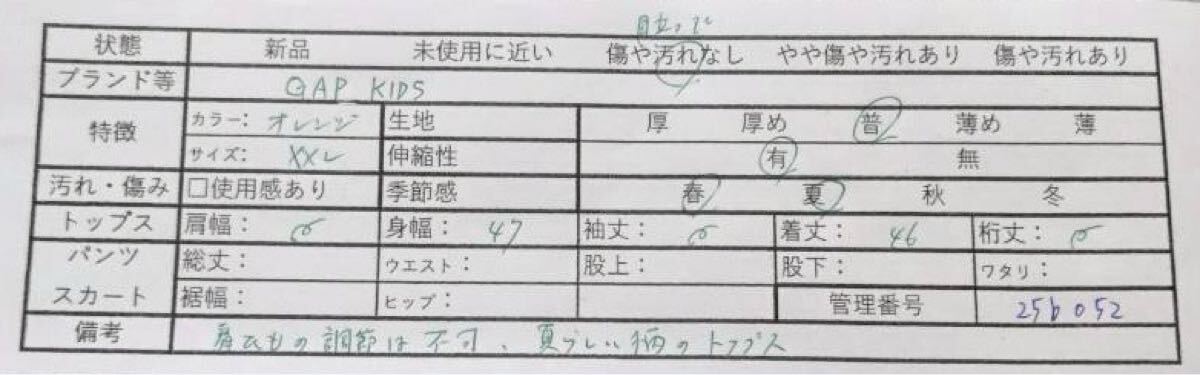 目立った
状態 新品 未使用に近い 傷や汚れなし やや傷や汚れあり 傷や汚れあり
ブランド等 GAP KIDS
特徴 カラー: オレンジ 生地 厚 厚め 普 薄め 薄
サイズ: XXL 伸縮性 有 無
汚れ・傷み □使用感あり 季節感 春 夏 秋 冬
トップス 肩幅: 身幅: 47 袖丈: 着丈: 46 裄丈:
パンツ 総丈: ウエスト: 股上: 股下: ワタリ:
スカート 裾幅: ヒップ: 管理番号 25b052
備考 肩ひもの調節は不可、夏らしい柄のトップス